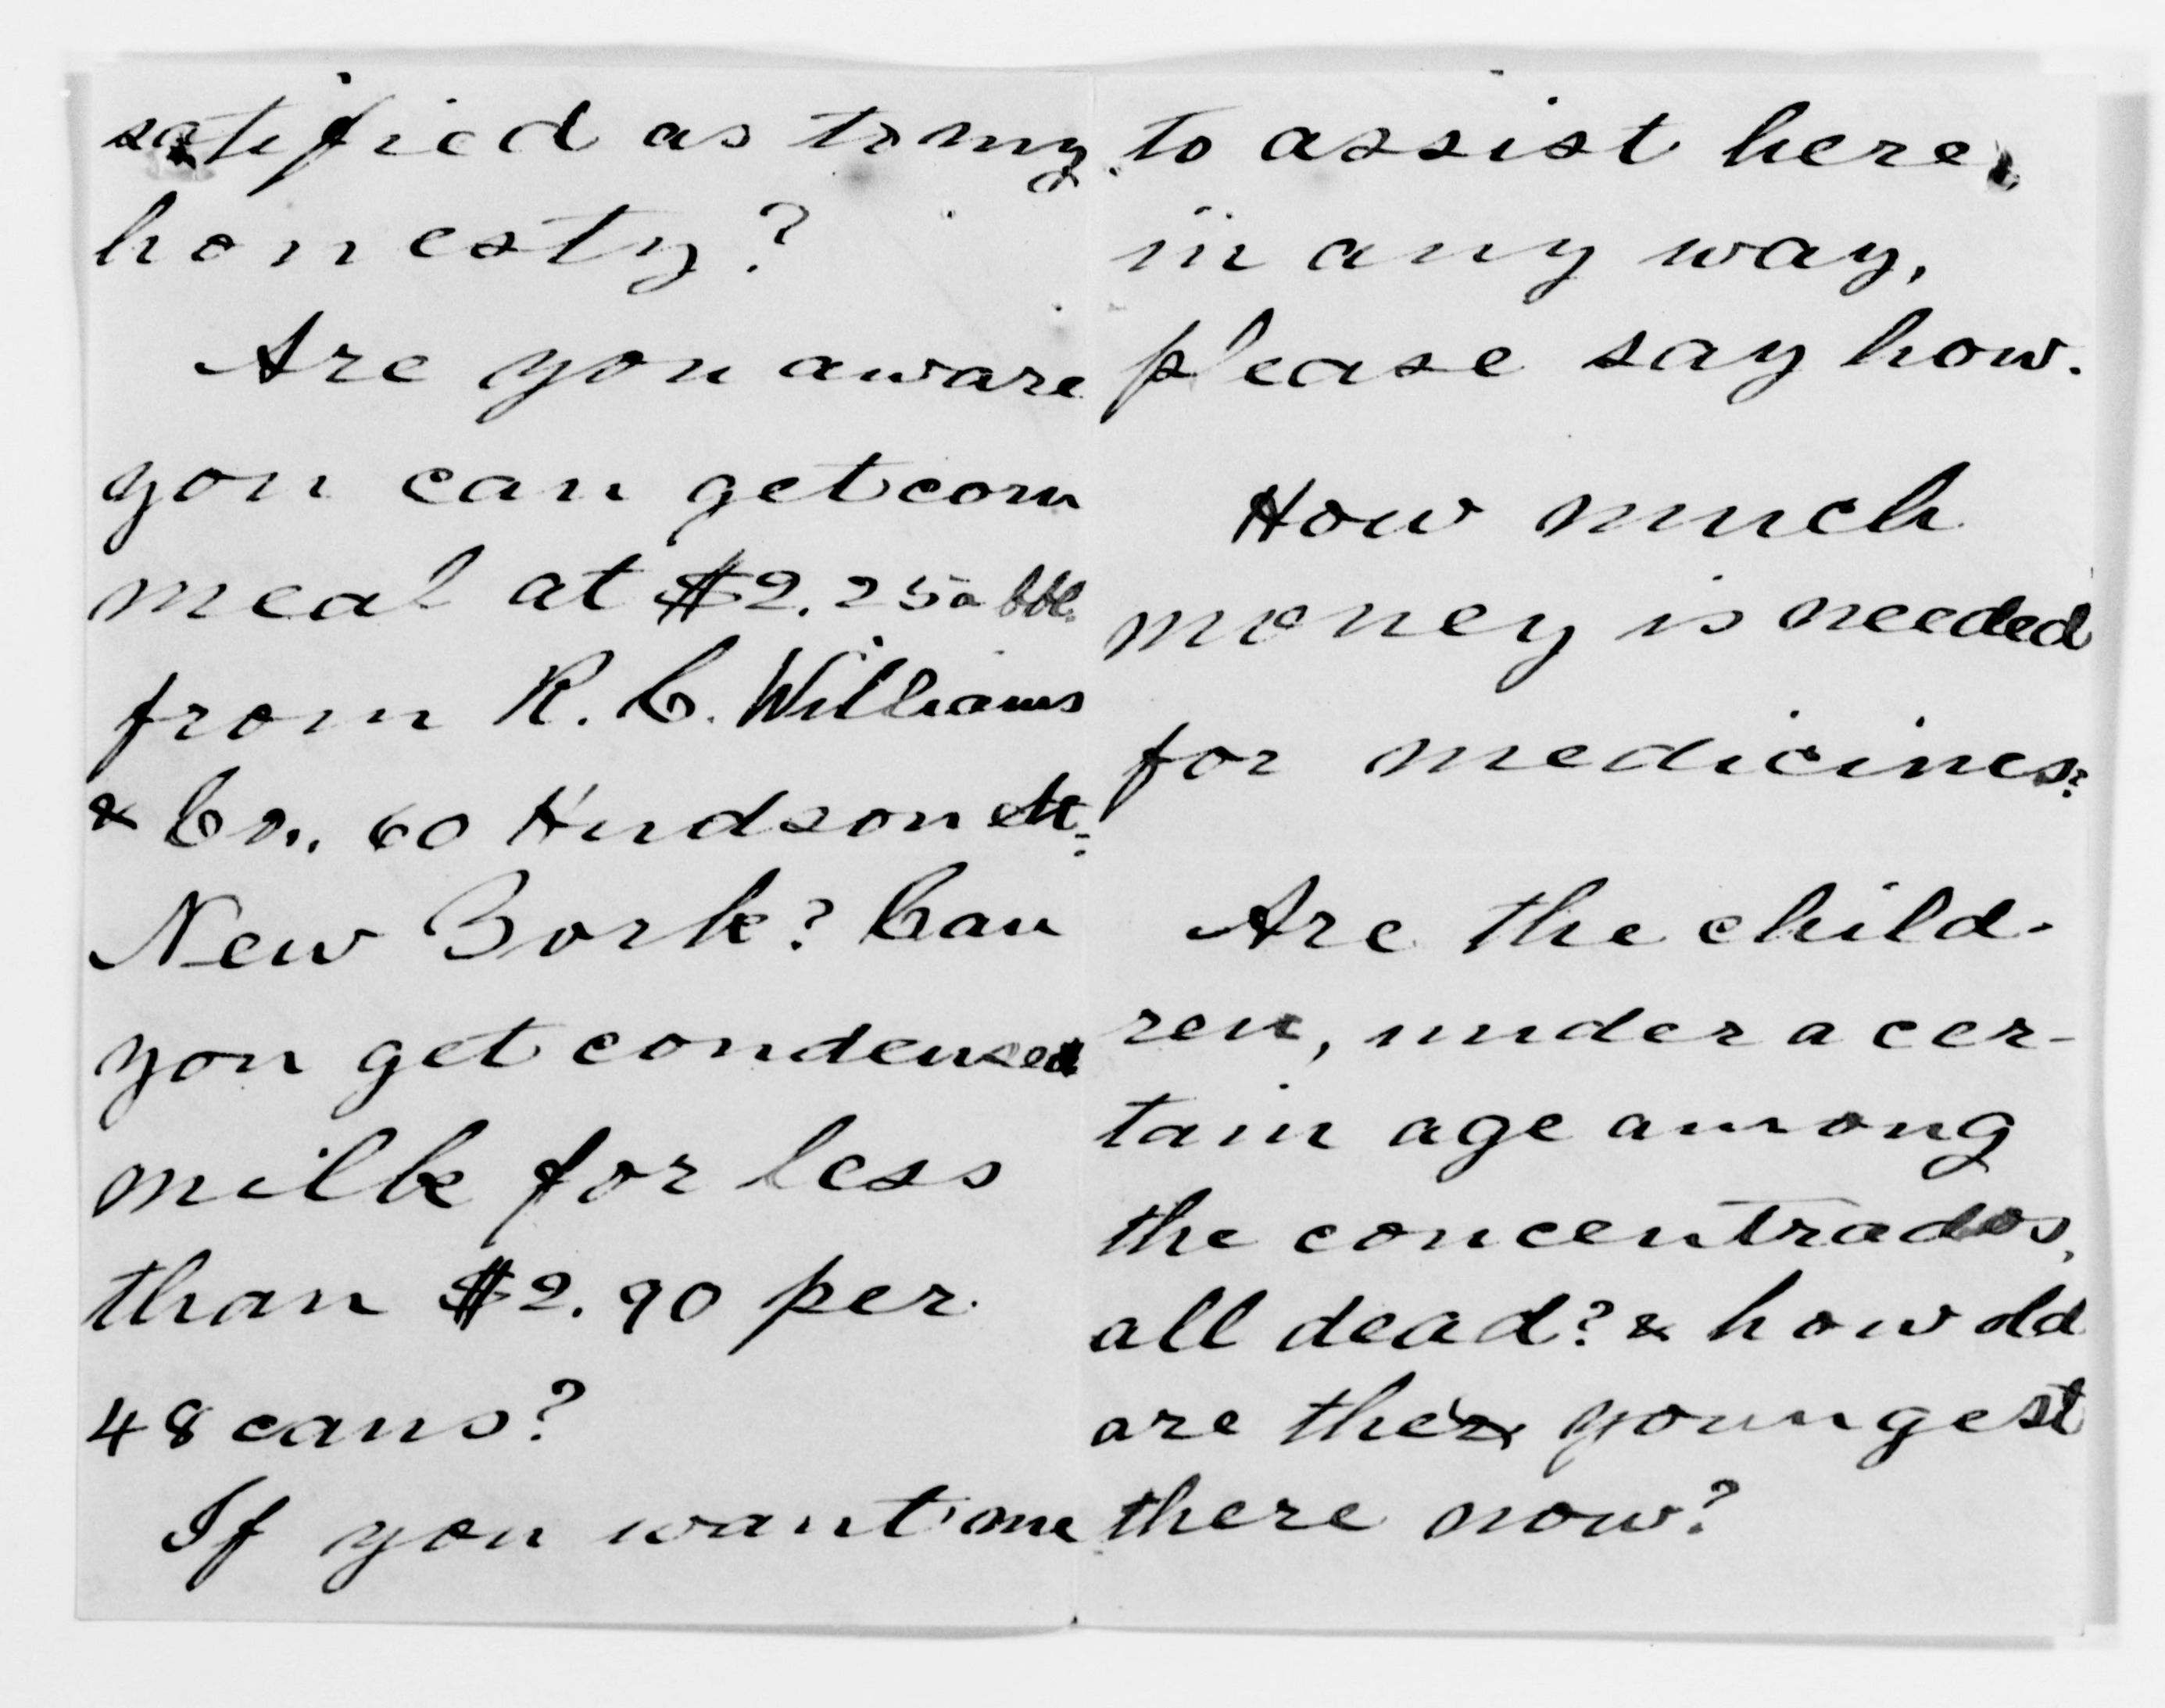 satified as to my
honesty?
Are you aware
you can get corn
meal at $2.25 a bbl.
from R. C. Williams
& Co. 60 Hudson St.
New York? Can
you get condensed
milk for less
than $2.90 per
48 cans?
If you want me
to assist here,
in any way,
please say how.
How much
money is needed
for medicines?
Are the child-
ren, under a cer-
tain age among
the concentrados,
all dead? & how old
are the youngest
there now?